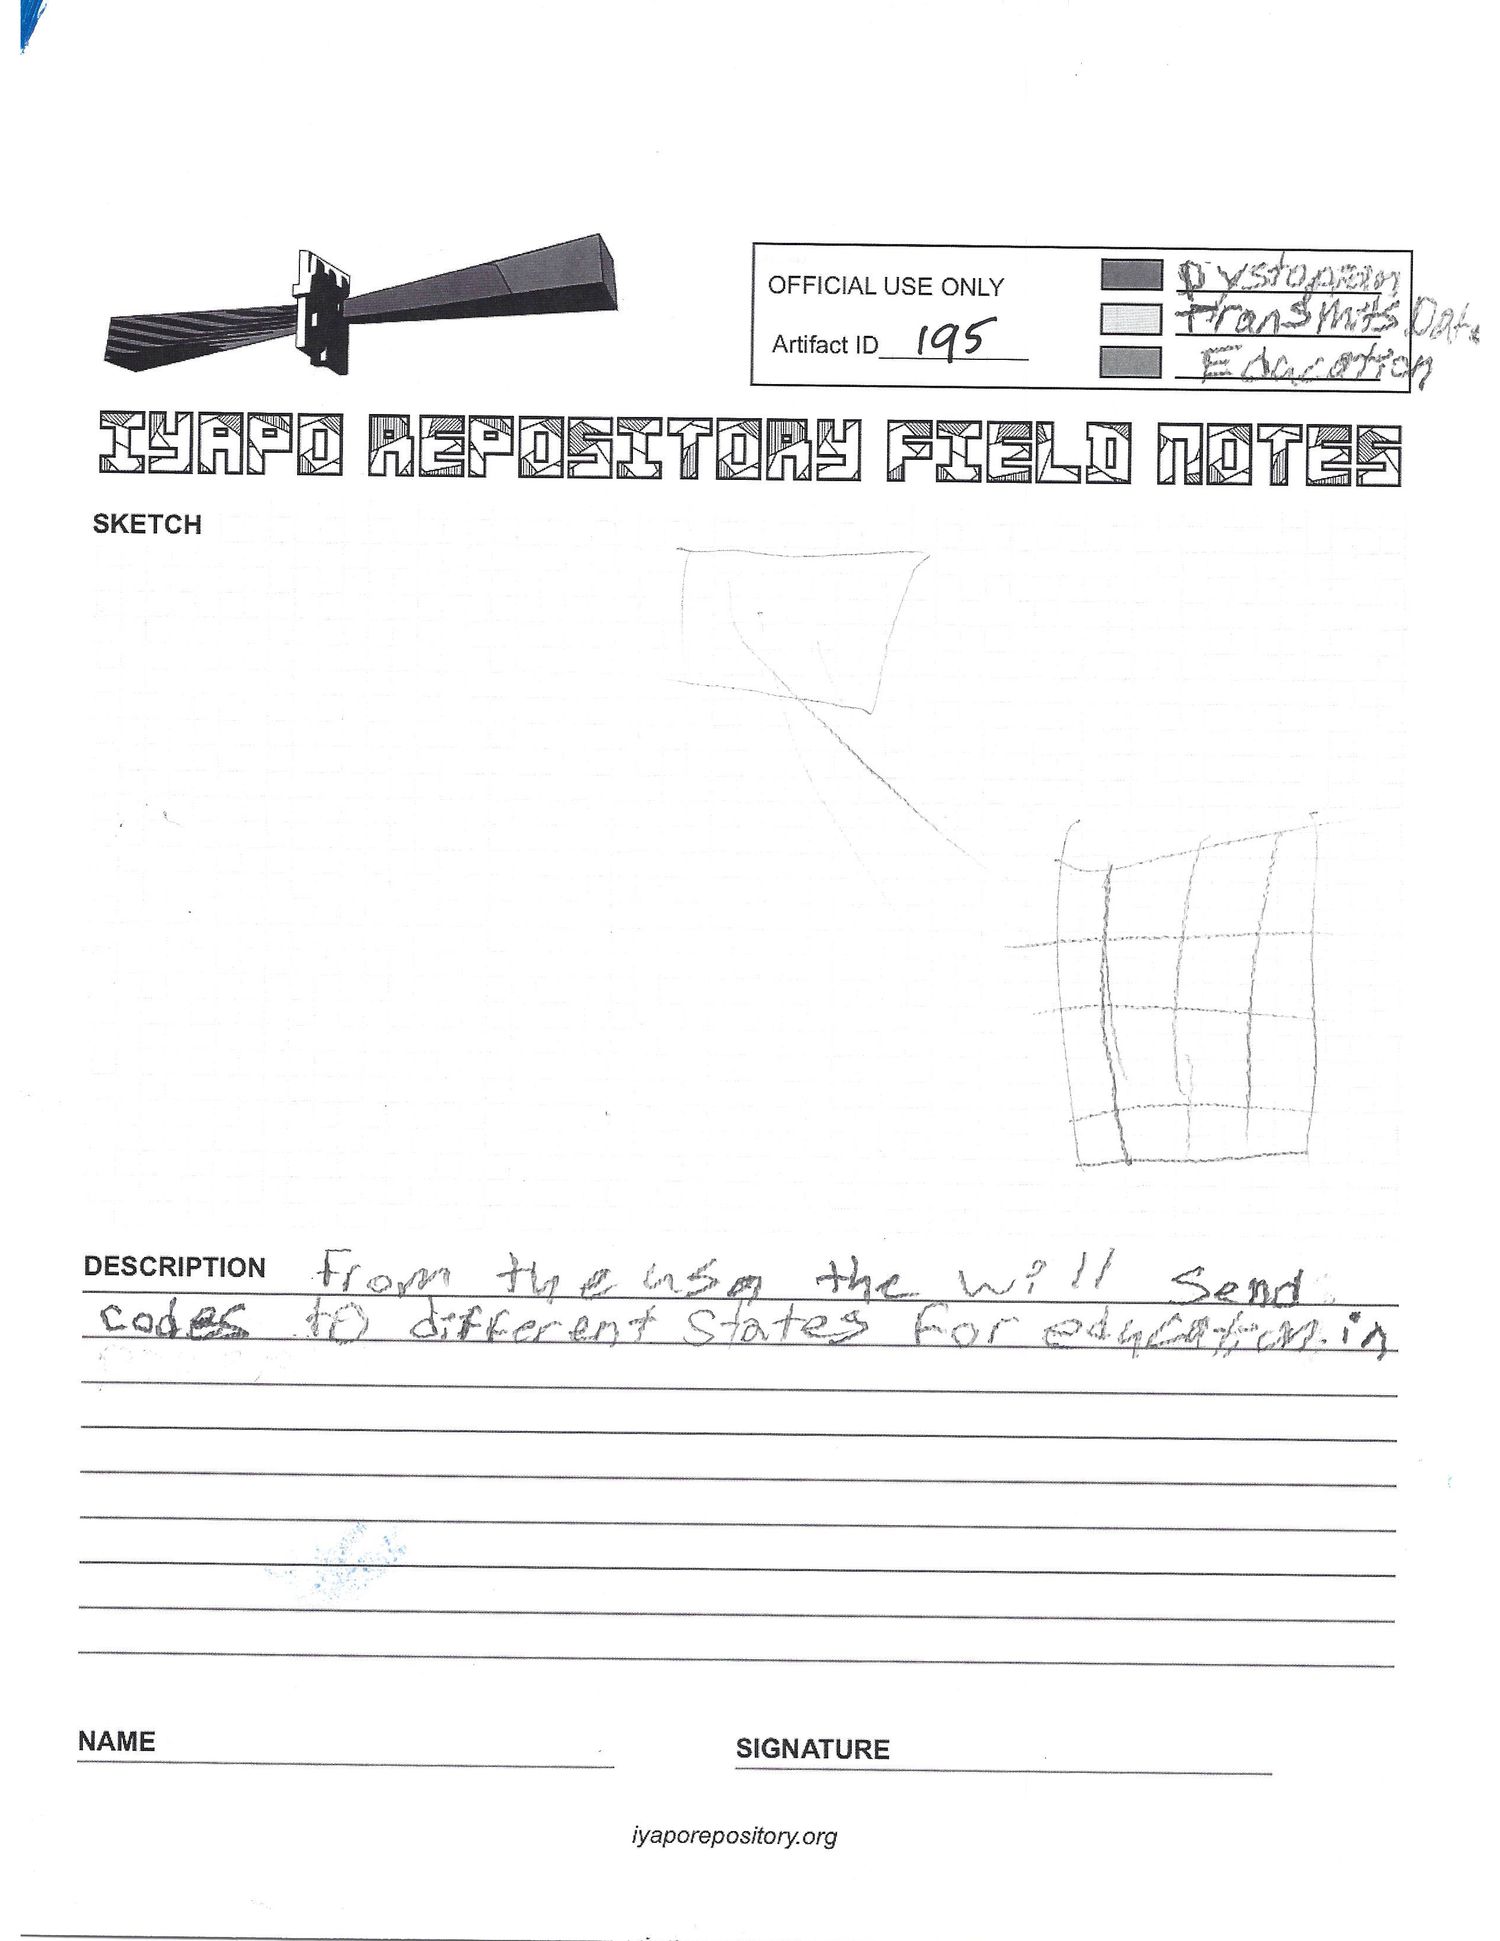 OFFICIAL USE ONLY
Dystopian
Artifact ID 195
transmits Data
Education
IYAPO REPOSITORY FIELD NOTES
SKETCH
DESCRIPTION From the usa the will send
codes to different states for education. in
NAME
SIGNATURE
iyaporepository.org